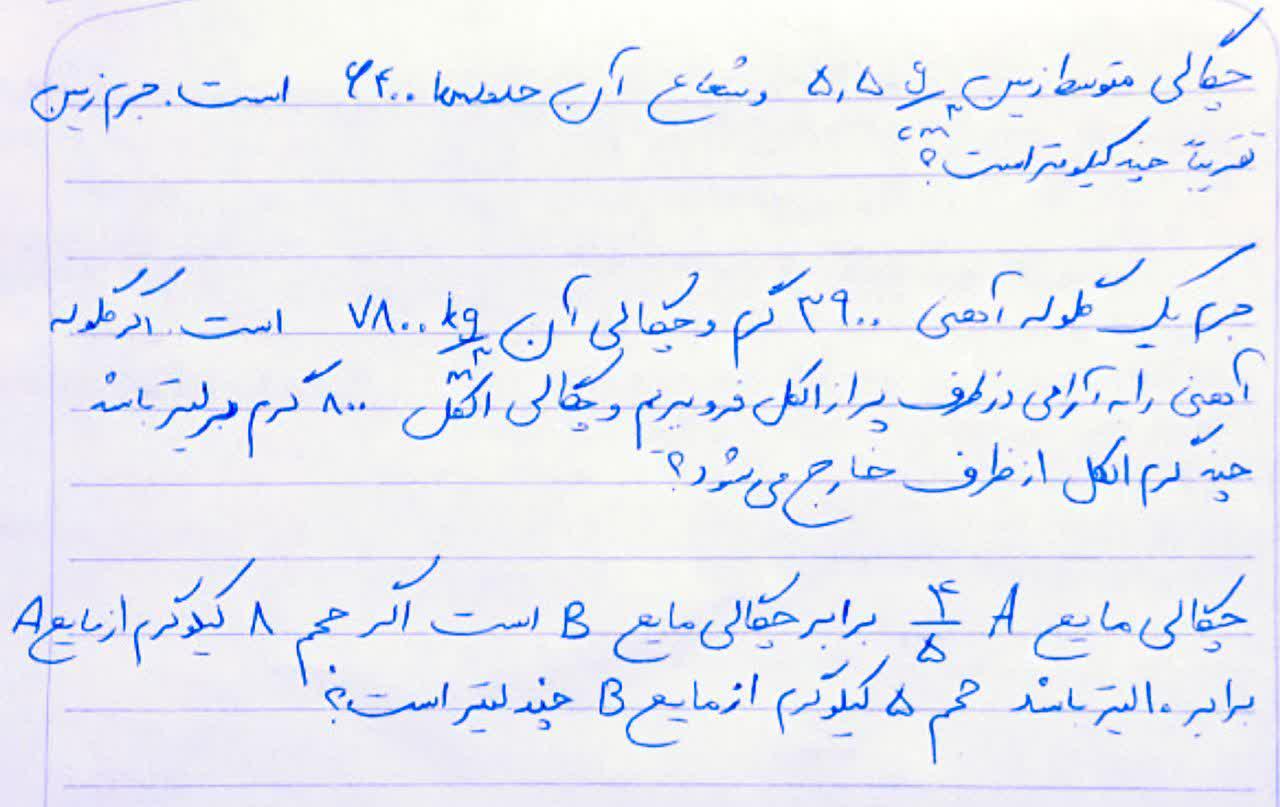 چگالی متوسط زمین ۵,۵ g/cm³ و شعاع آن حدود ۶۴۰۰ km است. جرم زمین
تقریباً چند کیلومتر است؟
جرم یک گلوله آهنی ۳۹۰۰ گرم و چگالی آن ۷۸۰۰ kg/m³ است. اگر گلوله
آهنی را به آرامی در ظرف پر از الکل فرو بریم و چگالی الکل ۸۰۰ گرم بر لیتر باشد
چند گرم الکل از ظرف خارج می‌شود؟
چگالی مایع A ۴/۵ برابر چگالی مایع B است اگر حجم ۸ کیلوگرم از مایع A
برابر ۱۰ لیتر باشد حجم ۵ کیلوگرم از مایع B چند لیتر است؟